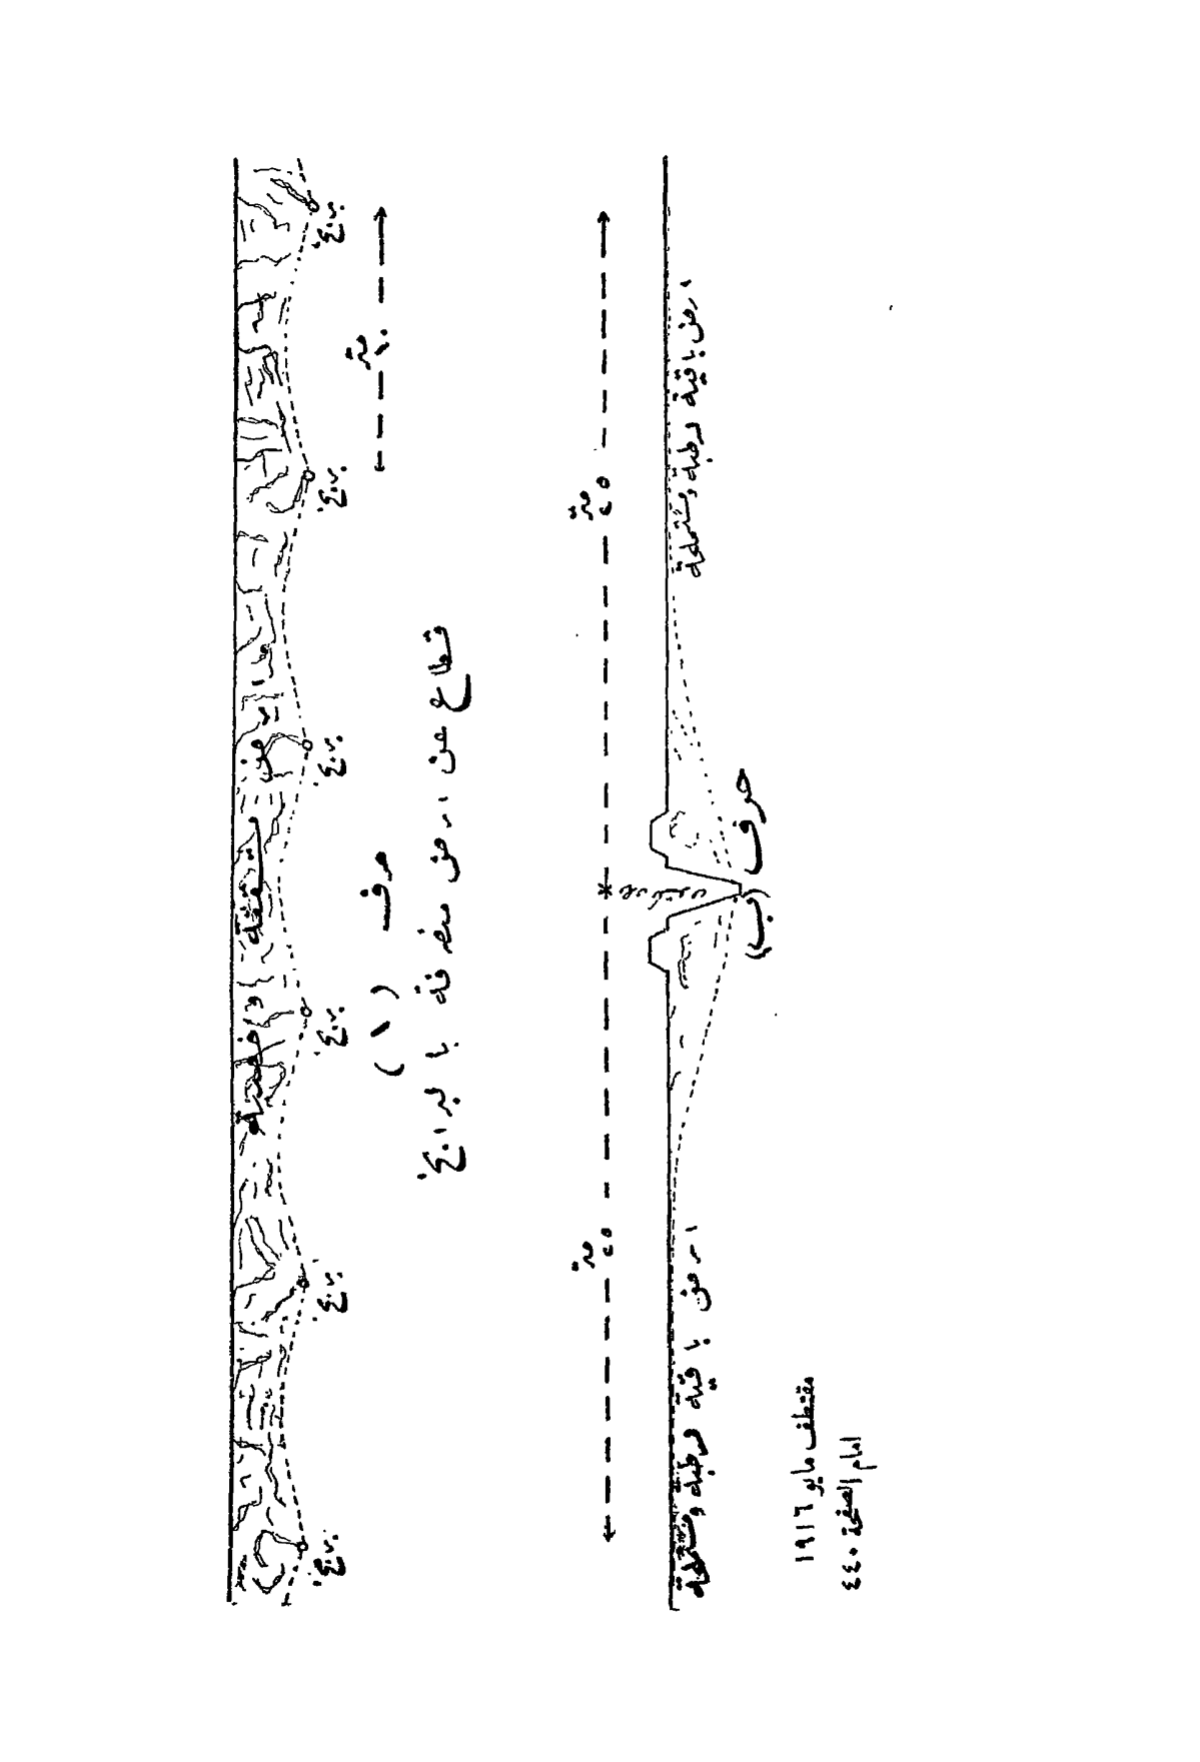 ارض
بربخ بربخ بربخ بربخ بربخ بربخ
١٠ متر
حرف (١)
قطاع عن ارض منصرفة بالبرابخ
٤٥ متر ٤٥ متر
ارض باقية رطبة ومتملحة ارض باقية رطبة ومتملحة
حرف (ب)
مقتطف مايو ١٩١٦
امام الصفحة ٤٤٠